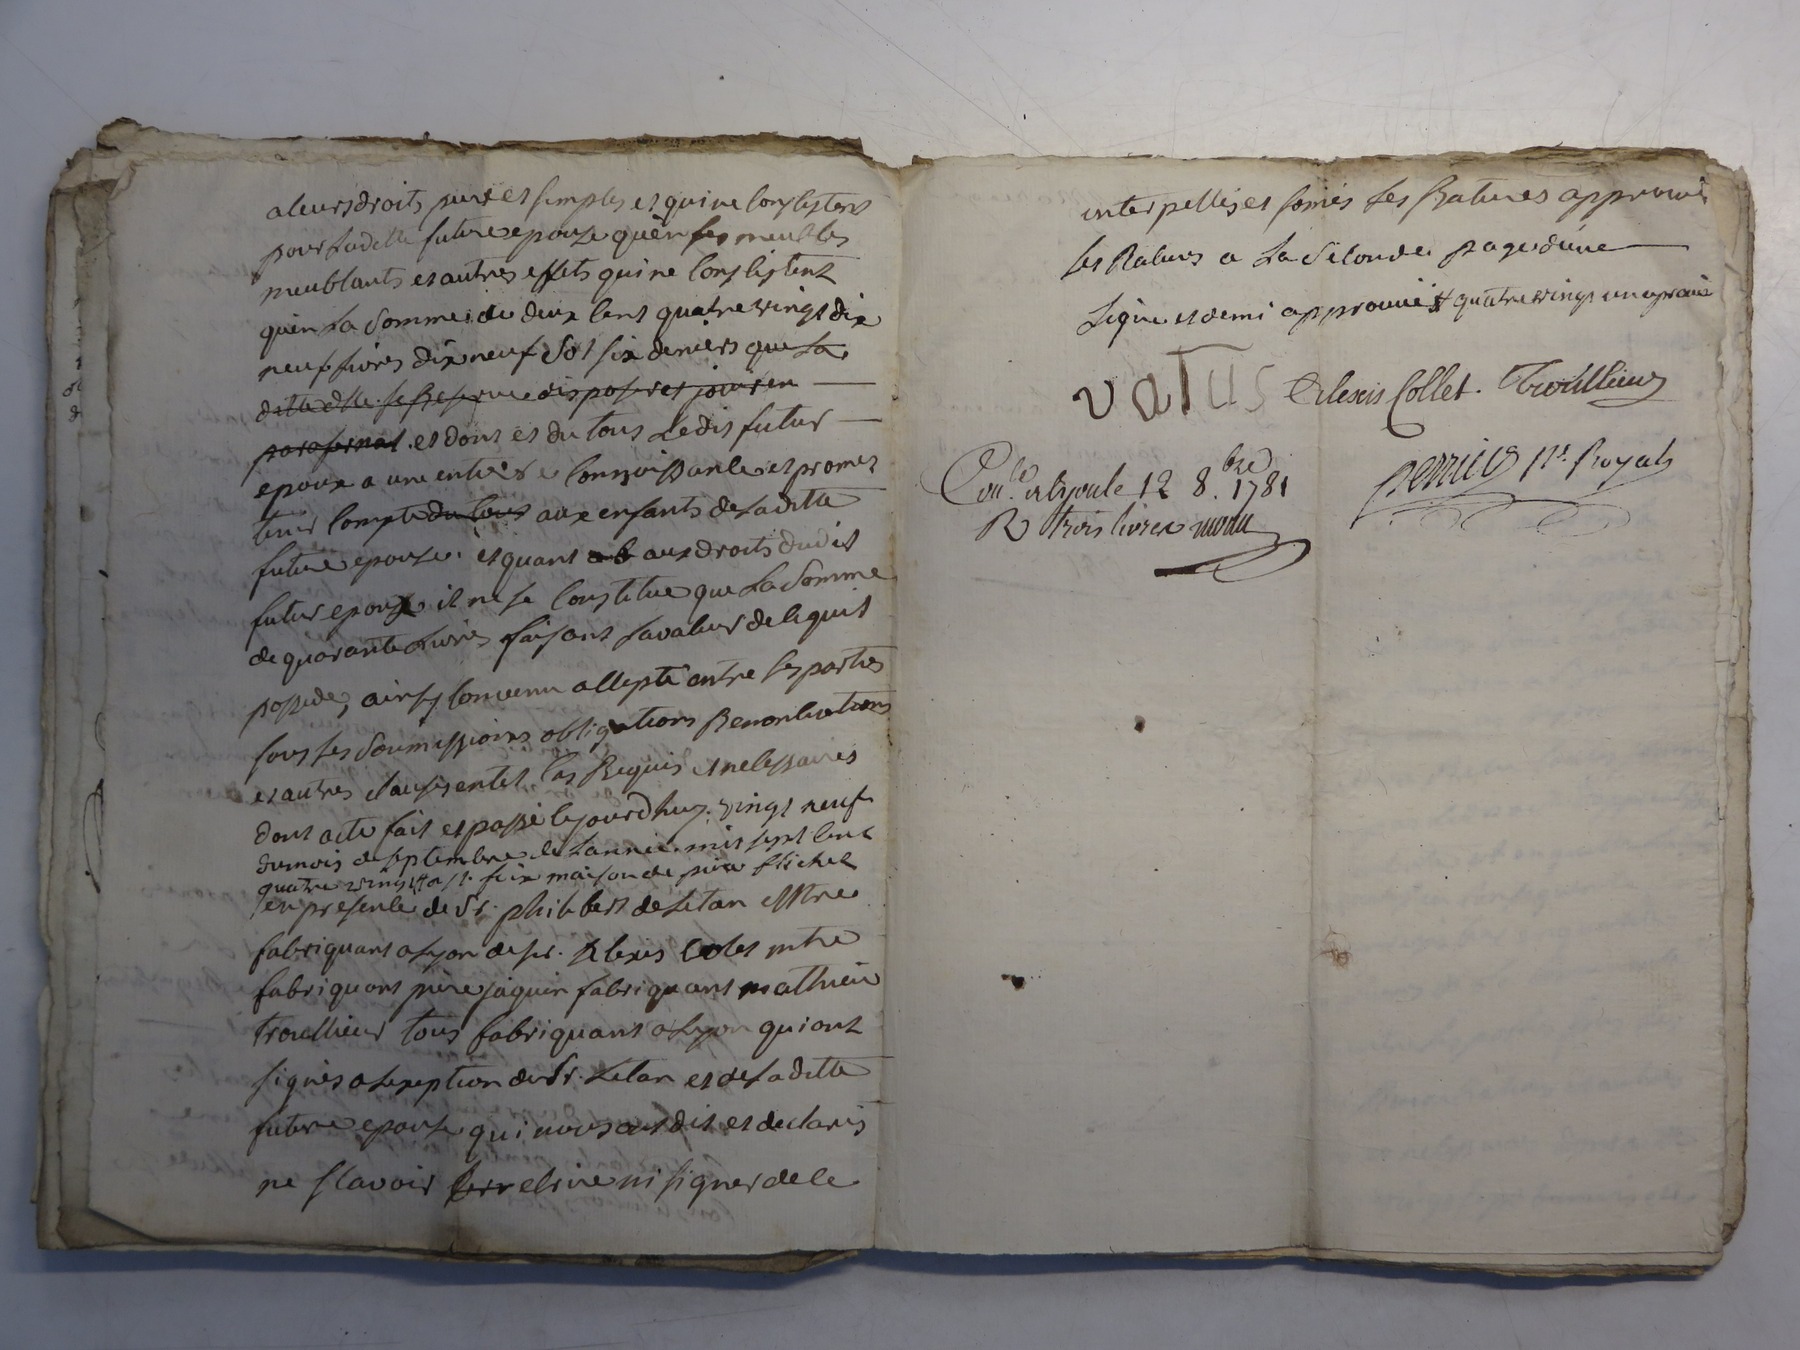 a leurs droits purs et simples et qui ne consistent
pour laditte future epouze qu'en ses meubles
meublants et autres effets qui ne consistent
qu'en la somme de deux cent quatre vingt dix
neuf livres dix neuf sol six deniers que la
ditte dlle. se reserve disposer et jouir en
parafernal. et dont et du tout ledit futur
epoux a une entiere connoissance et promet
tenir compte du tout aux enfants de laditte
future epouze. et quant aux droits dudit
futur epoux il ne se constitue que la somme
de quarante livres faisant la valeur de ce quil
possede, ainsy convenu accepté entre les parties
sous les soumissions obligations renonciations
et autres clauses en tel cas requis et necessaires
dont acte fait et passé le jourd'huy. vingt neuf
du mois de septembre de l'année mil sept cent
quatre vingt # a st. foix maison de
en presence de Sr. philibert de Letan Mtre
fabriquant a Lyon de sr. Alexis Colet mtre
fabriquant piere jaquin fabriquant mathieu
troullieur tous fabriquant a Lyon qui ont
signés a l'exeption du Sr. Letan et de laditte
future epouze qui nous ont dit et declarés
ne scavoir ecrire ni signer de ce
interpellés et somés les Ratures approuvé
les Ratures a la seconde page dune
Ligne et demi approuvé # quatre vingt un aprouvé
vatus Alexis Collet. Trouillieux
Perricio Nre. Royal
Con.lé a lyon le 12 8.bre 1781
R trois livres